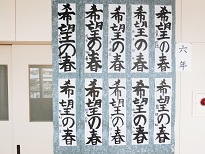 希望の春
希望の春
希望の春
希望の春
希望の春
希望の春
希望の春
希望の春
希望の春
希望の春
六年